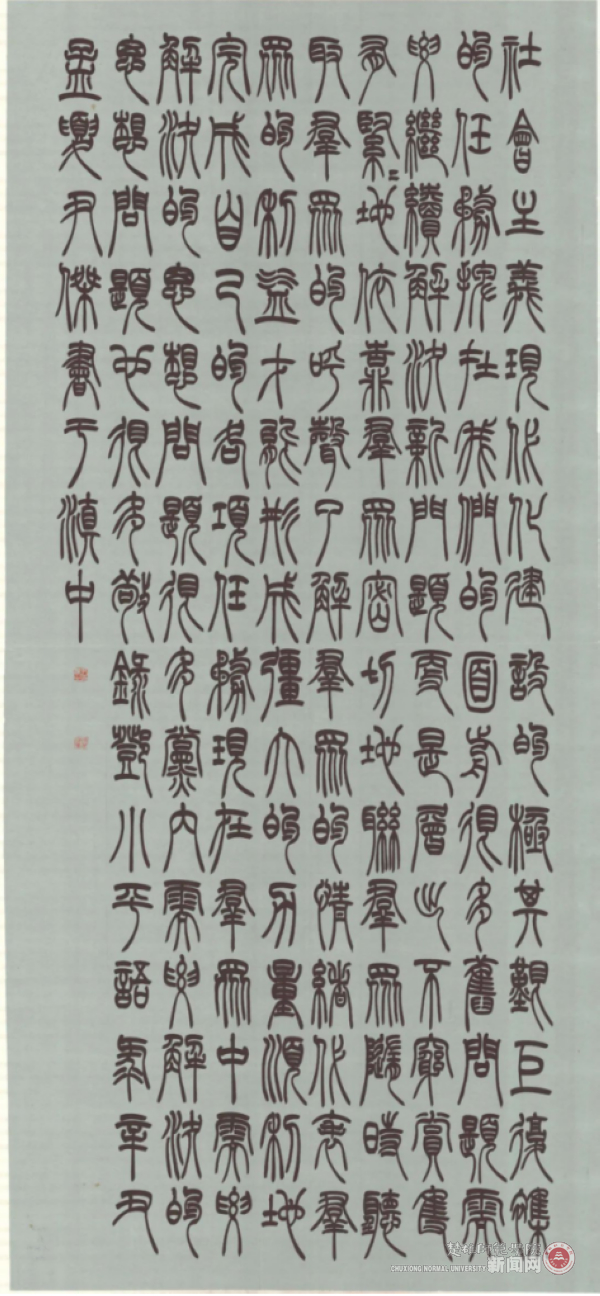 社會主義現代化建設的極其艱巨復雜
的任務擺在我們的面前很多舊問題需
要繼續解決新問題更是層出不窮黨隻
有緊〻地依靠羣眾密切地聯羣眾隨時聽
取羣眾的呼聲了解羣眾的情緒代表羣
眾的利益才能形成彊大的力量順利地
完成自己的各項任務現在羣眾中需要
解決的思想問題很多黨內需要解決的
思想問題也很多敬錄鄧小平語彔辛丑
孟夏尹傑書于滇中
楚雄師範學院
CHUXIONG NORMAL UNIVERSITY 新闻网